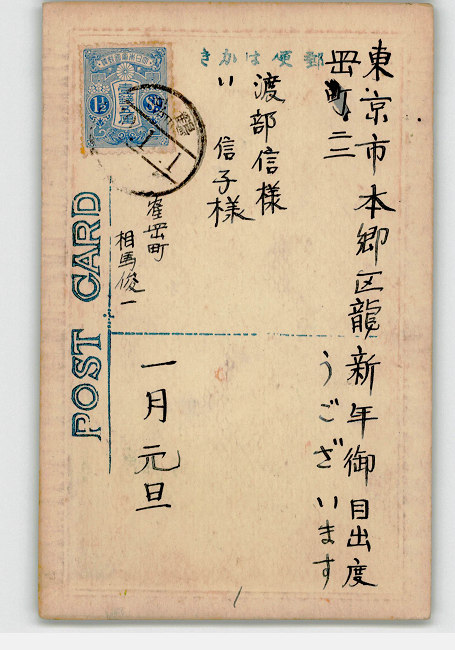 きかは便郵
東京市本郷区龍
岡町三三
渡部信様
〃 信子様
新年御目出度
うござ
います
隺岡町
相馬俊一
一月元旦
POST CARD
1½ Sn.